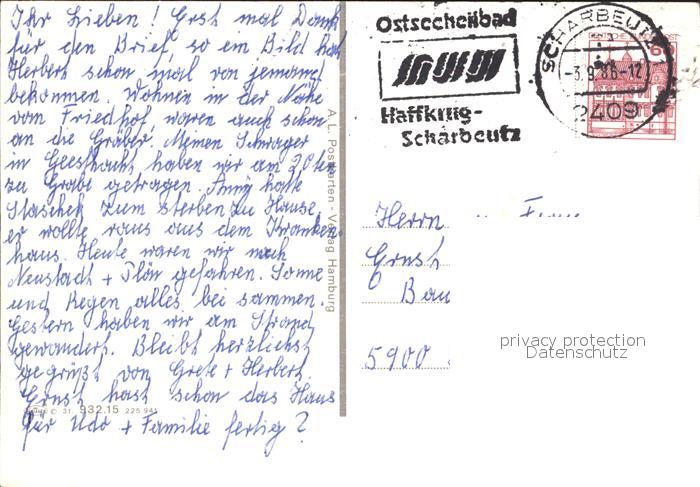 Ihr Lieben! Erst mal Dank
für den Brief, so em Bild hat
Herbert schon mal von jemand
bekommen. Wohnen in der Nähe
vom Friedhof, waren auch schon
an die Gräber. Meinen Schwager
in Geesthacht haben wir am 20ten
zu Grabe getragen. Anny hatte
Staschek zum sterben zu Hause,
er wollte raus aus dem Kranken
haus. Heute waren wir nach
Neustadt + Plön gefahren. Sonne
und Regen alles bei sammen.
Gestern haben wir am Strand
gewandert. Bleibt herzlichst
gegrüßt von Grete + Herbert.
Ernst hast schon das Haus
für Udo + Familie fertig?
31 932.15 225 941
A.L. Postkarten - Verlag Hamburg
Ostseeheilbad
Haffkrug-
Scharbeutz
SCHARBEUTZ 1
-3.9.86-12
2409
Herrn
Ernst
Bau
5900
privacy protection
Datenschutz